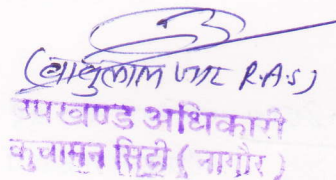 (बाबुलाल जाट R.A.S)
उपखण्ड अधिकारी
कुचामन सिटी (नागौर)